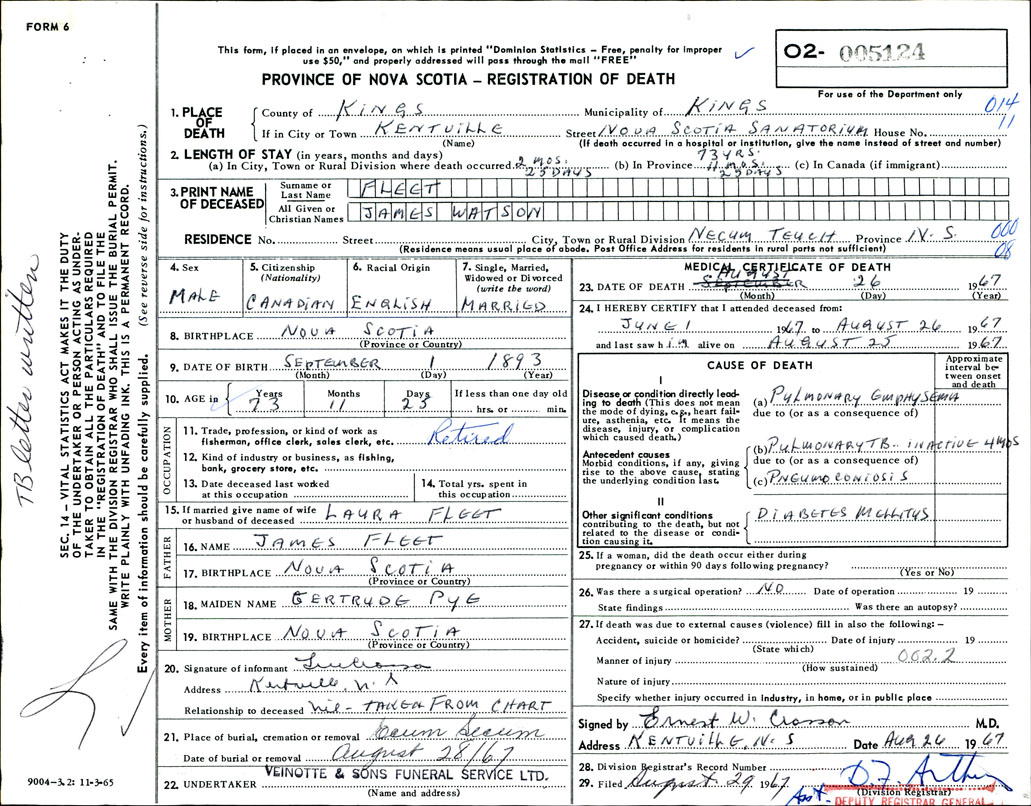 FORM 6
This form, if placed in an envelope, on which is printed "Dominion Statistics – Free, penalty for improper
use $50," and properly addressed will pass through the mail "FREE"
O2- 005124
For use of the Department only
PROVINCE OF NOVA SCOTIA – REGISTRATION OF DEATH
014
11
1. PLACE OF DEATH
County of KINGS Municipality of KINGS
If in City or Town KENTVILLE Street NOVA SCOTIA SANATORIUM House No.
(Name) (If death occurred in a hospital or institution, give the name instead of street and number)
2. LENGTH OF STAY (in years, months and days)
(a) In City, Town or Rural Division where death occurred 2 MOS. 25 DAYS (b) In Province 73 YRS. 11 MOS. 25 DAYS (c) In Canada (if immigrant)
3. PRINT NAME OF DECEASED
Surname or Last Name FLEET
All Given or Christian Names JAMES WATSON
RESIDENCE No. Street City, Town or Rural Division NECUM TEUCH Province N. S.
(Residence means usual place of abode. Post Office Address for residents in rural parts not sufficient)
000
08
4. Sex MALE
5. Citizenship (Nationality) CANADIAN
6. Racial Origin ENGLISH
7. Single, Married, Widowed or Divorced (write the word) MARRIED
8. BIRTHPLACE NOVA SCOTIA
(Province or Country)
9. DATE OF BIRTH SEPTEMBER 1 1893
(Month) (Day) (Year)
10. AGE in Years 73 Months 11 Days 25 If less than one day old hrs. or min.
OCCUPATION
11. Trade, profession, or kind of work as fisherman, office clerk, sales clerk, etc. Retired
12. Kind of industry or business, as fishing, bank, grocery store, etc.
13. Date deceased last worked at this occupation
14. Total yrs. spent in this occupation
15. If married give name of wife or husband of deceased LAURA FLEET
FATHER
16. NAME JAMES FLEET
17. BIRTHPLACE NOVA SCOTIA
(Province or Country)
MOTHER
18. MAIDEN NAME GERTRUDE PYE
19. BIRTHPLACE NOVA SCOTIA
(Province or Country)
20. Signature of informant
Address Kentville, N. S
Relationship to deceased Nil - TAKEN FROM CHART
21. Place of burial, cremation or removal Ecum Secum
Date of burial or removal August 28/67
22. UNDERTAKER VEINOTTE & SONS FUNERAL SERVICE LTD.
(Name and address)
MEDICAL CERTIFICATE OF DEATH
23. DATE OF DEATH SEPTEMBER AUGUST 26 1967
(Month) (Day) (Year)
24. I HEREBY CERTIFY that I attended deceased from:
JUNE 1 1967 to AUGUST 26 1967
and last saw him alive on AUGUST 25 1967
CAUSE OF DEATH
Approximate interval between onset and death
I
Disease or condition directly leading to death (This does not mean the mode of dying, e.g., heart failure, asthenia, etc. It means the disease, injury, or complication which caused death.)
(a) PULMONARY EMPHYSEMA
due to (or as a consequence of)
Antecedent causes
Morbid conditions, if any, giving rise to the above cause, stating the underlying condition last.
(b) PULMONARY TB. INACTIVE 4 MOS
due to (or as a consequence of)
(c) PNEUMOCONIOSIS
II
Other significant conditions contributing to the death, but not related to the disease or condition causing it.
DIABETES MELLITUS
25. If a woman, did the death occur either during pregnancy or within 90 days following pregnancy?
(Yes or No)
26. Was there a surgical operation? NO Date of operation 19
State findings Was there an autopsy?
27. If death was due to external causes (violence) fill in also the following: –
Accident, suicide or homicide? Date of injury 19
(State which)
Manner of injury 002.2
(How sustained)
Nature of injury
Specify whether injury occurred in industry, in home, or in public place
Signed by Ernest W. Crosson M.D.
Address KENTVILLE, N. S Date AUG 26 1967
28. Division Registrar's Record Number
29. Filed August 29 1967
(Division Registrar)
Asst- DEPUTY REGISTRAR GENERAL
TB letter written
SEC. 14 – VITAL STATISTICS ACT MAKES IT THE DUTY
OF THE UNDERTAKER OR PERSON ACTING AS UNDER-
TAKER TO OBTAIN ALL THE PARTICULARS REQUIRED
IN THE "REGISTRATION OF DEATH" AND TO FILE THE
SAME WITH THE DIVISION REGISTRAR WHO SHALL ISSUE THE BURIAL PERMIT.
WRITE PLAINLY WITH UNFADING INK. THIS IS A PERMANENT RECORD.
Every item of information should be carefully supplied. (See reverse side for instructions.)
9004-3.2: 11-3-65